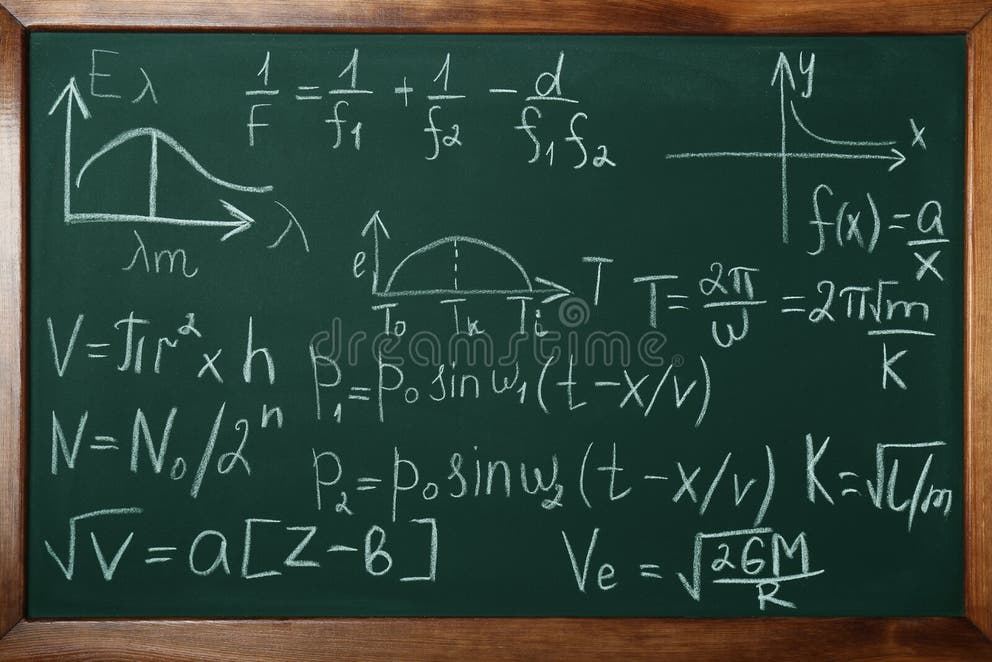 Eλ
1/F = 1/f1 + 1/f2 - d/f1f2
y
x
f(x) = a/x
λ
λm
e
T
To Tk Ti
T = 2π/ω = 2π√m/K
V = πr² x h
P1 = P0 sin ω1 (t - x/v)
N = N0/2ⁿ
P2 = P0 sin ω2 (t - x/v)
K = √l/m
√v = a[Z - b]
Ve = √2GM/R
dreamstime